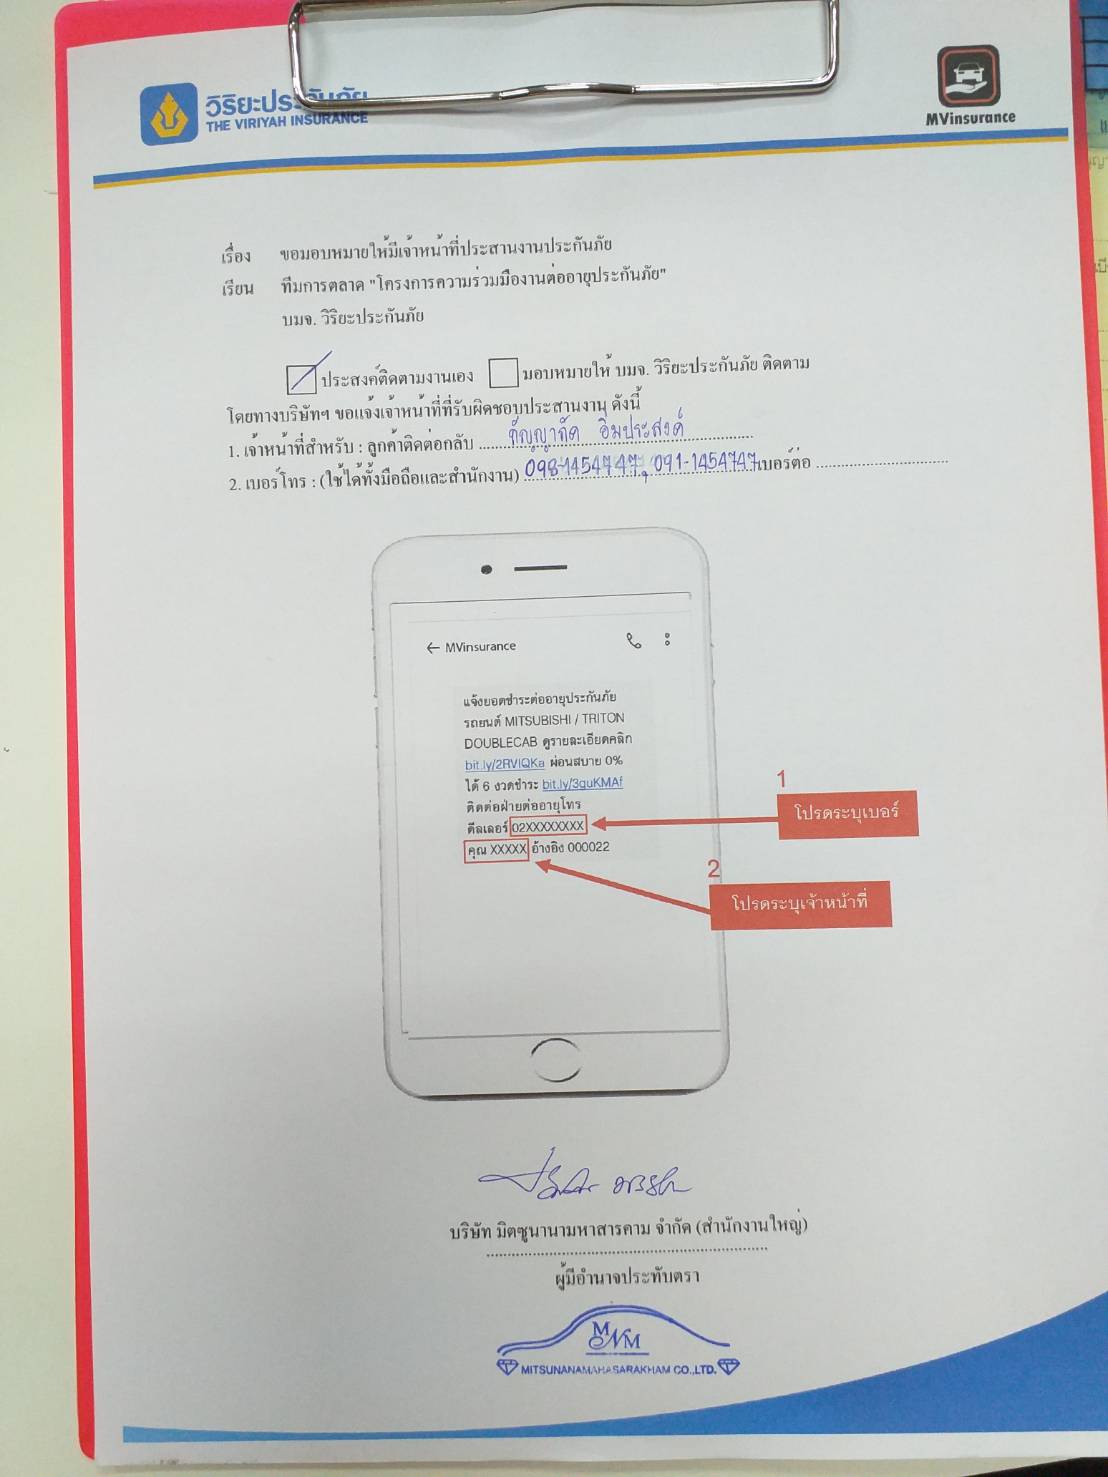 วิริยะประกันภัย
THE VIRIYAH INSURANCE
MVinsurance
เรื่อง ขอมอบหมายให้มีเจ้าหน้าที่ประสานงานประกันภัย
เรียน ทีมการตลาด "โครงการความร่วมมืองานต่ออายุประกันภัย"
บมจ. วิริยะประกันภัย
ประสงค์ติดตามงานเอง มอบหมายให้ บมจ. วิริยะประกันภัย ติดตาม
โดยทางบริษัทฯ ขอแจ้งเจ้าหน้าที่ที่รับผิดชอบประสานงาน ดังนี้
1. เจ้าหน้าที่สำหรับ : ลูกค้าติดต่อกลับ กัญญาภัค อิ่มประสงค์
2. เบอร์โทร : (ใช้ได้ทั้งมือถือและสำนักงาน) 098-1454747, 091-1454747 เบอร์ต่อ
← MVinsurance
แจ้งยอดชำระต่ออายุประกันภัย
รถยนต์ MITSUBISHI / TRITON
DOUBLECAB ดูรายละเอียดคลิก
bit.ly/2RVIQKa ผ่อนสบาย 0%
ได้ 6 งวดชำระ bit.ly/3guKMAf
ติดต่อฝ่ายต่ออายุโทร
ดีลเลอร์ 02XXXXXXXX
คุณ XXXXX อ้างอิง 000022
1
โปรดระบุเบอร์
2
โปรดระบุเจ้าหน้าที่
บริษัท มิตซูนานามหาสารคาม จำกัด (สำนักงานใหญ่)
ผู้มีอำนาจประทับตรา
MNM
MITSUNANAMAHASARAKHAM CO.,LTD.